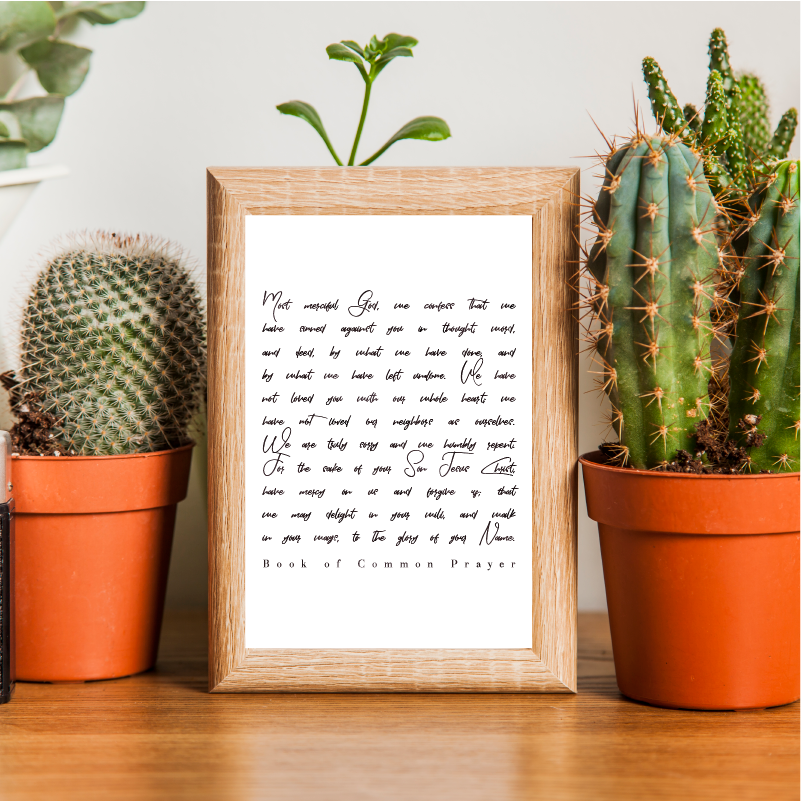 Most merciful God, we confess that we
have sinned against you in thought, word,
and deed, by what we have done, and
by what we have left undone. We have
not loved you with our whole heart; we
have not loved our neighbors as ourselves.
We are truly sorry and we humbly repent.
For the sake of your Son Jesus Christ,
have mercy on us and forgive us; that
we may delight in your will, and walk
in your ways, to the glory of your Name.
Book of Common Prayer